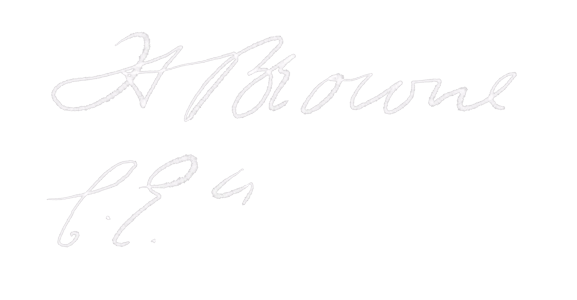 H Browne
C. E. "